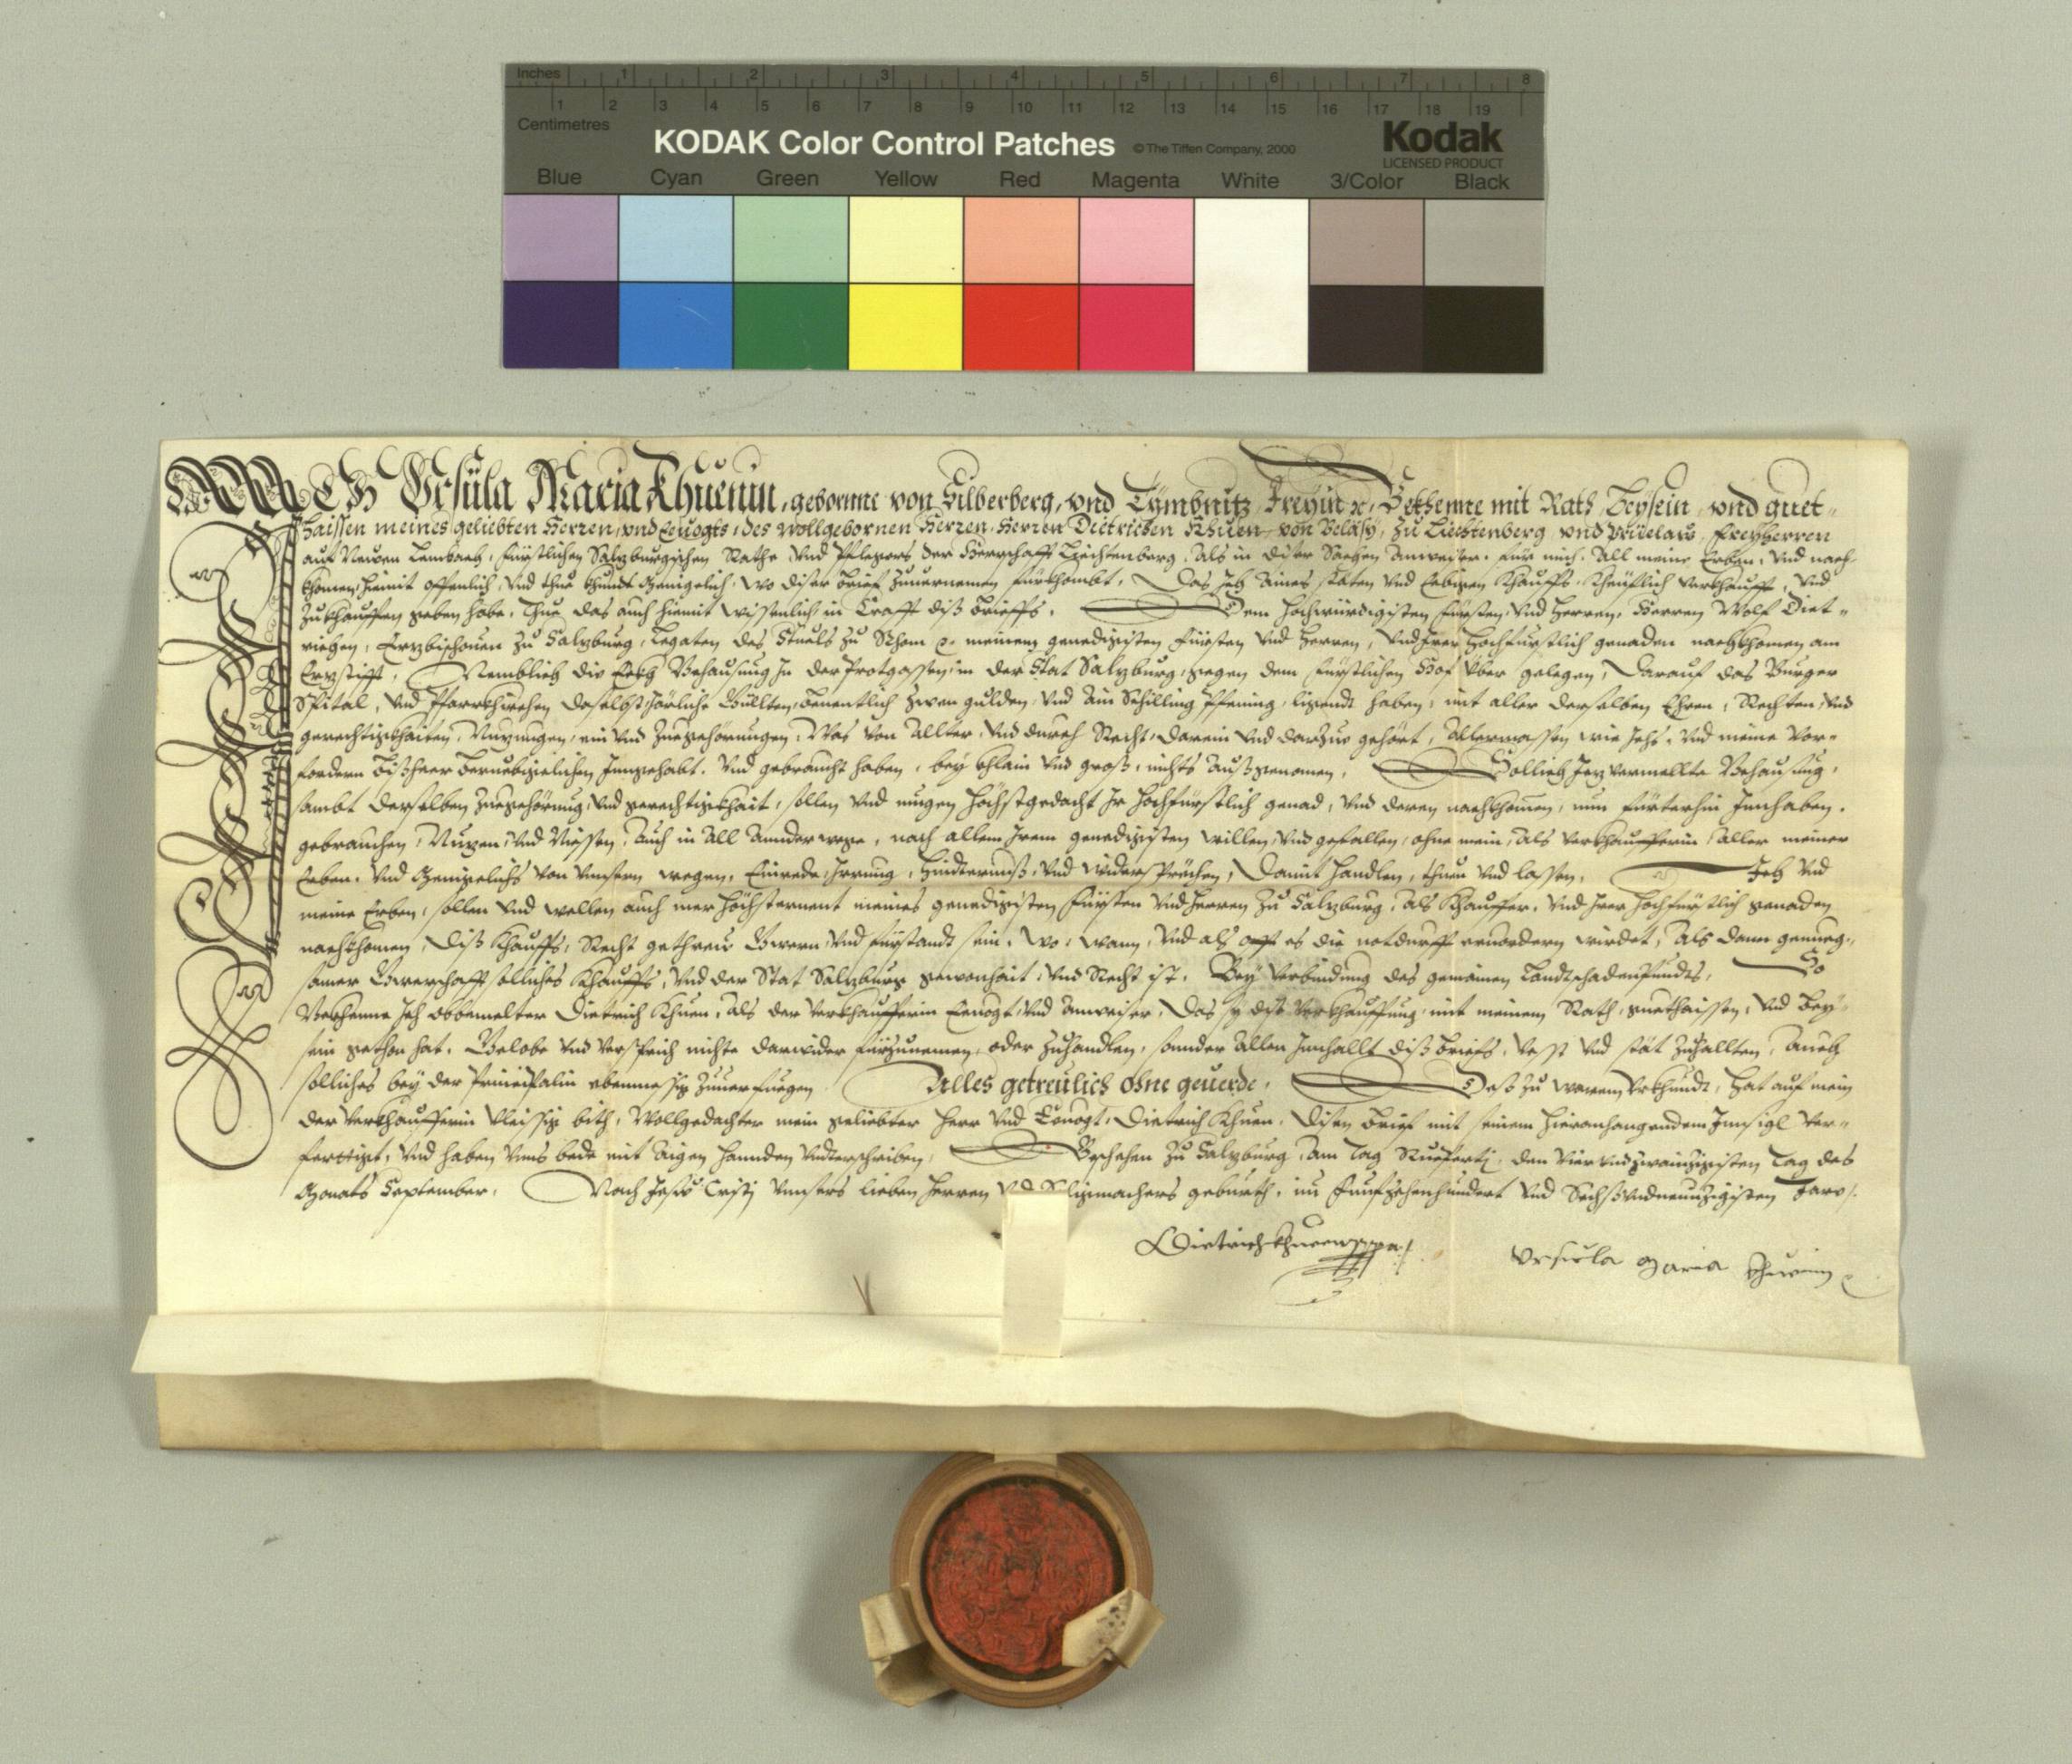 Inches 1 2 3 4 5 6 7 8
1 2 3 4 5 6 7 8 9 10 11 12 13 14 15 16 17 18 19
Centimetres
KODAK Color Control Patches © The Tiffen Company, 2000 Kodak
LICENSED PRODUCT
Blue Cyan Green Yellow Red Magenta White 3/Color Black
ICH Ursüla Maria Khuenin, geborne von Silberberg, vnd Tymbnitz Freyin ꝛc. Bekhenne mit Rath, Beysein, vnd guet-
haissen meines geliebten Herren, vnd Eeuogts, des Wollgebornen Herren, Herren Dietrichen Khuen, von Belasy, zu Liechtenberg vnd Freyherren
auf Neuen Lembach, Fürstlichen Salzburgischen Raths vnd Pflegers der Herrschafft Liechtenberg, Als in diser Sachen Anweiser, für mich, All meine Erben, vnd nach-
khomen, hiemit offenlich, vnd thue khundt Menigclich, wo diser Brief zuuernemen fürkhombt, Das Ich Aines staten vnd Eebigen Khauffs, Kheuflich verkhaufft, vnd
zukhauffen geben habe, Thue das auch hiemit wissentlich in Crafft diß Brieffs. Dem Hochwürdigisten Fürsten vnd Herren, Herren Wolf Diet-
richen, Erzbischouen zu Salzburg, Legaten des Stuels zu Rhom ꝛc. meinem genedigisten Fürsten vnd Herren, vnd Irer Hochfürstlich genaden nachkhomen am
Erzstifft, Nemblich die Eckh Behausung In der Protgassen, in der Stat Salzburg, gegen dem Fürstlichen Hof über gelegen, Darauf das Burger
Spital, vnd Pfarrkhirchen daselbst Järliche Güllten, benentlich zwen gulden, vnd Ain Schilling Pfening, ligendt haben, mit aller derselben Ehren, Rechten, vnd
gerechtigkhaiten, Nuzungen, ein vnd Zuegehörungen, Was von Allter, vnd durch Recht, darein vnd darzue gehört, Allermassen wie Ichs, vnd meine Vor-
fordern bißheer Innegehabt, vnd gebraucht haben, bey khlain vnd groß, nichts außgenomen. Sollich Jez vermellte Behausung,
sambt derselben Zuegehörung, vnd gerechtigkhait, sollen vnd mugen Höchstgedacht Ir Hochfürstlich genad, vnd deren nachkhomen, nun fürterhin Innhaben,
gebrauchen, Nuzen, vnd Niessen, Auch in All Annder wege, nach allem Irem genedigisten willen, vnd gefallen, ohne mein, Als Verkhaufferin, Aller meiner
Erben, vnd Menigclichs von vnsern wegen, Einrede, Irrung, Hindternuß, vnd widersprechen, Damit handlen, thuen vnd lassen. Ich vnd
meine Erben, sollen vnd wellen auch mer Höchsternent meines genedigisten Fürsten vnd Herren zu Salzburg, Als Khauffer, vnd Irer Hochfürstlich genaden
nachkhomen, diß Khauffs, Recht gethreue Gweren, vnd fürstandt sein, Wo, Wann, vnd als offt es die notdurfft eruordern wirdet, Als dann genueg-
samer Gwerschafft solliches Khauffs, vnd der Stat Salzburg gewonhait, vnd Recht ist, Bey Verbindung des gemainen Landtschadenpundts, So
Bekhenne Ich obbemelter Dietrich Khuen, Als der Verkhaufferin Eeuogt, vnd Anweiser, Das sy dise Verkhauffung mit meinem Rath, guethaissen, vnd Bey-
sein gethon hat, Gelobe vnd Versprich nichts darwider fürzunemen, oder zuhandlen, sonnder Allen Innhallt diß Briefs, vesst vnd stät zuhallten, Auch
solliches bey der Principalin zuuerfuegen Alles getreulich ohne geuerde. Deß zu warem Vrkhundt, Hat auf mein
der Verkhaufferin vleissig bith, Wollgedachter mein geliebter Herr vnd Eeuogt, Dietrich Khuen, Disen Brief mit seinem hieranhangendem Innsigl ver-
ferttigt, vnd haben vnns bede mit Aigen hannden vndterschriben. Geschehen zu Salzburg, Am Tag Rueperti, den Vier vnd zwainzigisten Tag des
Monats September, Nach Jesus Cristi vnnsers lieben Herren vnd Seligmachers geburth, im Funfzehenhundert vnd Sechßvndneunzigisten Jare.
Dietrich Khuen Ursula Maria Khuenin